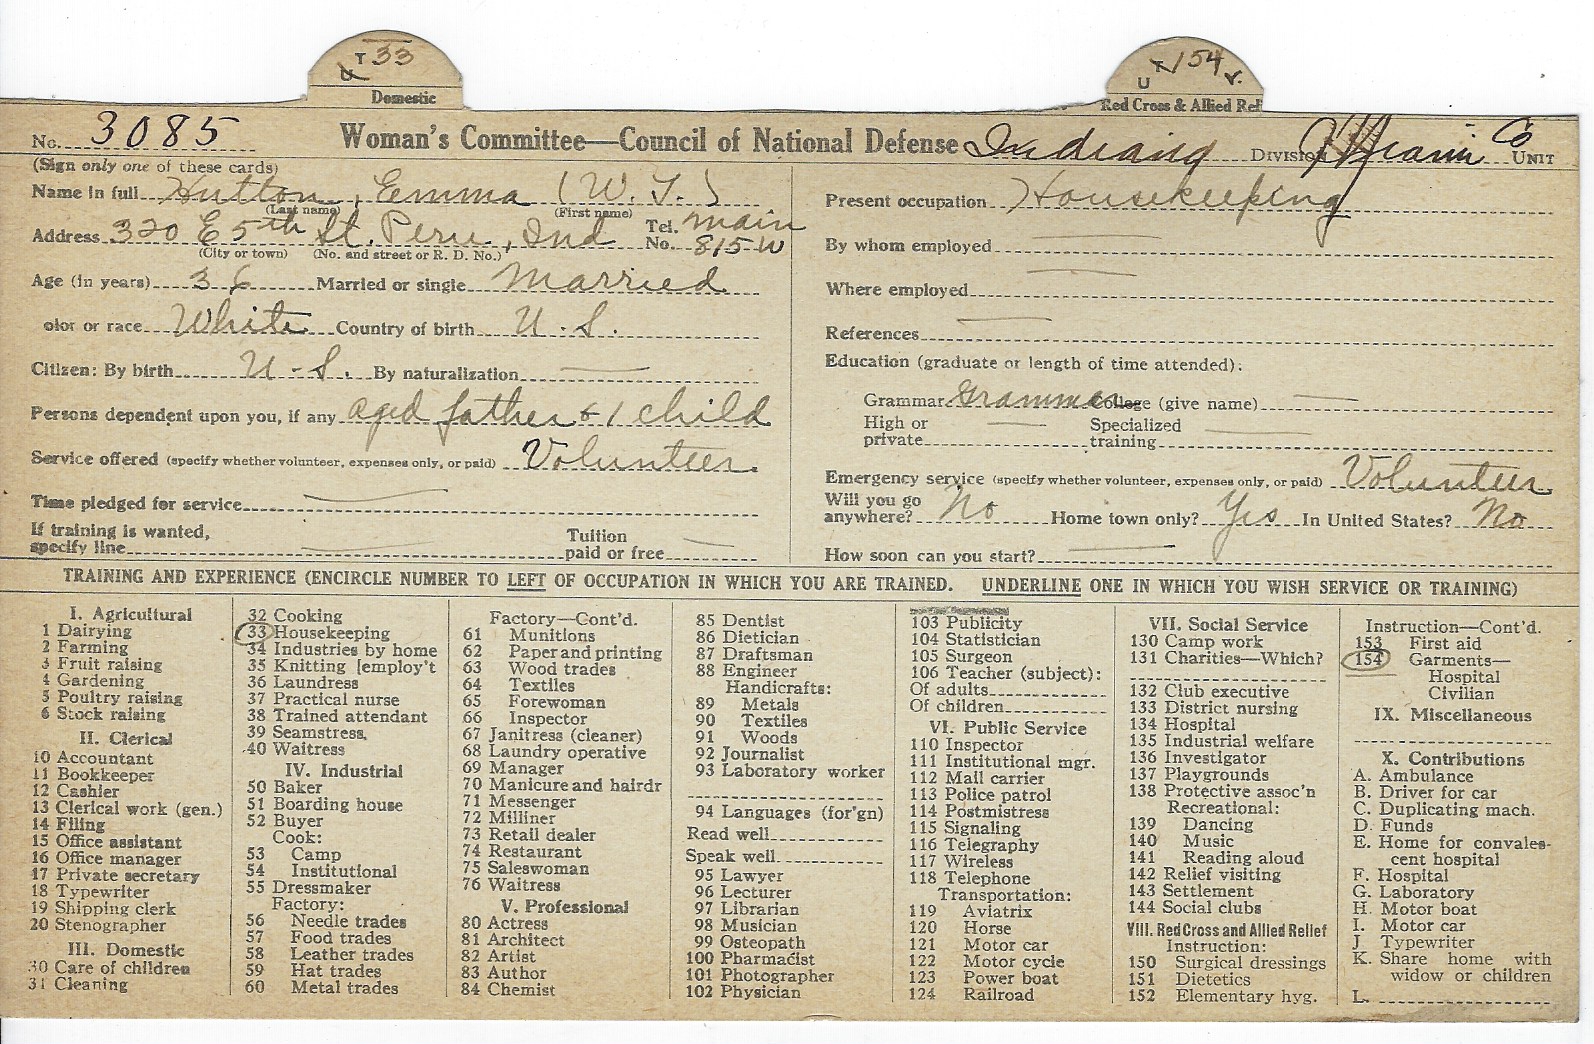 T 33
U
Domestic
T 154
U
Red Cross & Allied Rel
No. 3085 Woman's Committee—Council of National Defense Indiana DIVISION Miami Co UNIT
(Sign only one of these cards)
Name in full Hutton, Emma (W. T.)
(Last name) (First name)
Address 320 E 5th St. Peru, Ind Tel. No. Main 815-W
(City or town) (No. and street or R. D. No.)
Age (in years) 36 Married or single Married
olor or race White Country of birth U. S.
Citizen: By birth U-S. By naturalization
Persons dependent upon you, if any aged father & 1 child
Service offered (specify whether volunteer, expenses only, or paid) Volunteer.
Time pledged for service
If training is wanted, specify line Tuition paid or free
Present occupation Housekeeping
By whom employed
Where employed
References
Education (graduate or length of time attended):
Grammar Grammar College (give name)
High or private Specialized training
Emergency service (specify whether volunteer, expenses only, or paid) Volunteer
Will you go anywhere? No Home town only? Yes In United States? No
How soon can you start?
TRAINING AND EXPERIENCE (ENCIRCLE NUMBER TO LEFT OF OCCUPATION IN WHICH YOU ARE TRAINED. UNDERLINE ONE IN WHICH YOU WISH SERVICE OR TRAINING)
I. Agricultural
1 Dairying
2 Farming
3 Fruit raising
4 Gardening
5 Poultry raising
6 Stock raising
II. Clerical
10 Accountant
11 Bookkeeper
12 Cashier
13 Clerical work (gen.)
14 Filing
15 Office assistant
16 Office manager
17 Private secretary
18 Typewriter
19 Shipping clerk
20 Stenographer
III. Domestic
30 Care of children
31 Cleaning
32 Cooking
33 Housekeeping
34 Industries by home
35 Knitting [employ't
36 Laundress
37 Practical nurse
38 Trained attendant
39 Seamstress
40 Waitress
IV. Industrial
50 Baker
51 Boarding house
52 Buyer
Cook:
53 Camp
54 Institutional
55 Dressmaker
Factory:
56 Needle trades
57 Food trades
58 Leather trades
59 Hat trades
60 Metal trades
Factory—Cont'd.
61 Munitions
62 Paper and printing
63 Wood trades
64 Textiles
65 Forewoman
66 Inspector
67 Janitress (cleaner)
68 Laundry operative
69 Manager
70 Manicure and hairdr
71 Messenger
72 Milliner
73 Retail dealer
74 Restaurant
75 Saleswoman
76 Waitress
V. Professional
80 Actress
81 Architect
82 Artist
83 Author
84 Chemist
85 Dentist
86 Dietician
87 Draftsman
88 Engineer
Handicrafts:
89 Metals
90 Textiles
91 Woods
92 Journalist
93 Laboratory worker
94 Languages (for'gn)
Read well
Speak well
95 Lawyer
96 Lecturer
97 Librarian
98 Musician
99 Osteopath
100 Pharmacist
101 Photographer
102 Physician
103 Publicity
104 Statistician
105 Surgeon
106 Teacher (subject):
Of adults
Of children
VI. Public Service
110 Inspector
111 Institutional mgr.
112 Mail carrier
113 Police patrol
114 Postmistress
115 Signaling
116 Telegraphy
117 Wireless
118 Telephone
Transportation:
119 Aviatrix
120 Horse
121 Motor car
122 Motor cycle
123 Power boat
124 Railroad
VII. Social Service
130 Camp work
131 Charities—Which?
132 Club executive
133 District nursing
134 Hospital
135 Industrial welfare
136 Investigator
137 Playgrounds
138 Protective assoc'n
Recreational:
139 Dancing
140 Music
141 Reading aloud
142 Relief visiting
143 Settlement
144 Social clubs
VIII. Red Cross and Allied Relief
Instruction:
150 Surgical dressings
151 Dietetics
152 Elementary hyg.
Instruction—Cont'd.
153 First aid
154 Garments—
Hospital
Civilian
IX. Miscellaneous
X. Contributions
A. Ambulance
B. Driver for car
C. Duplicating mach.
D. Funds
E. Home for convales-
cent hospital
F. Hospital
G. Laboratory
H. Motor boat
I. Motor car
J. Typewriter
K. Share home with
widow or children
L.